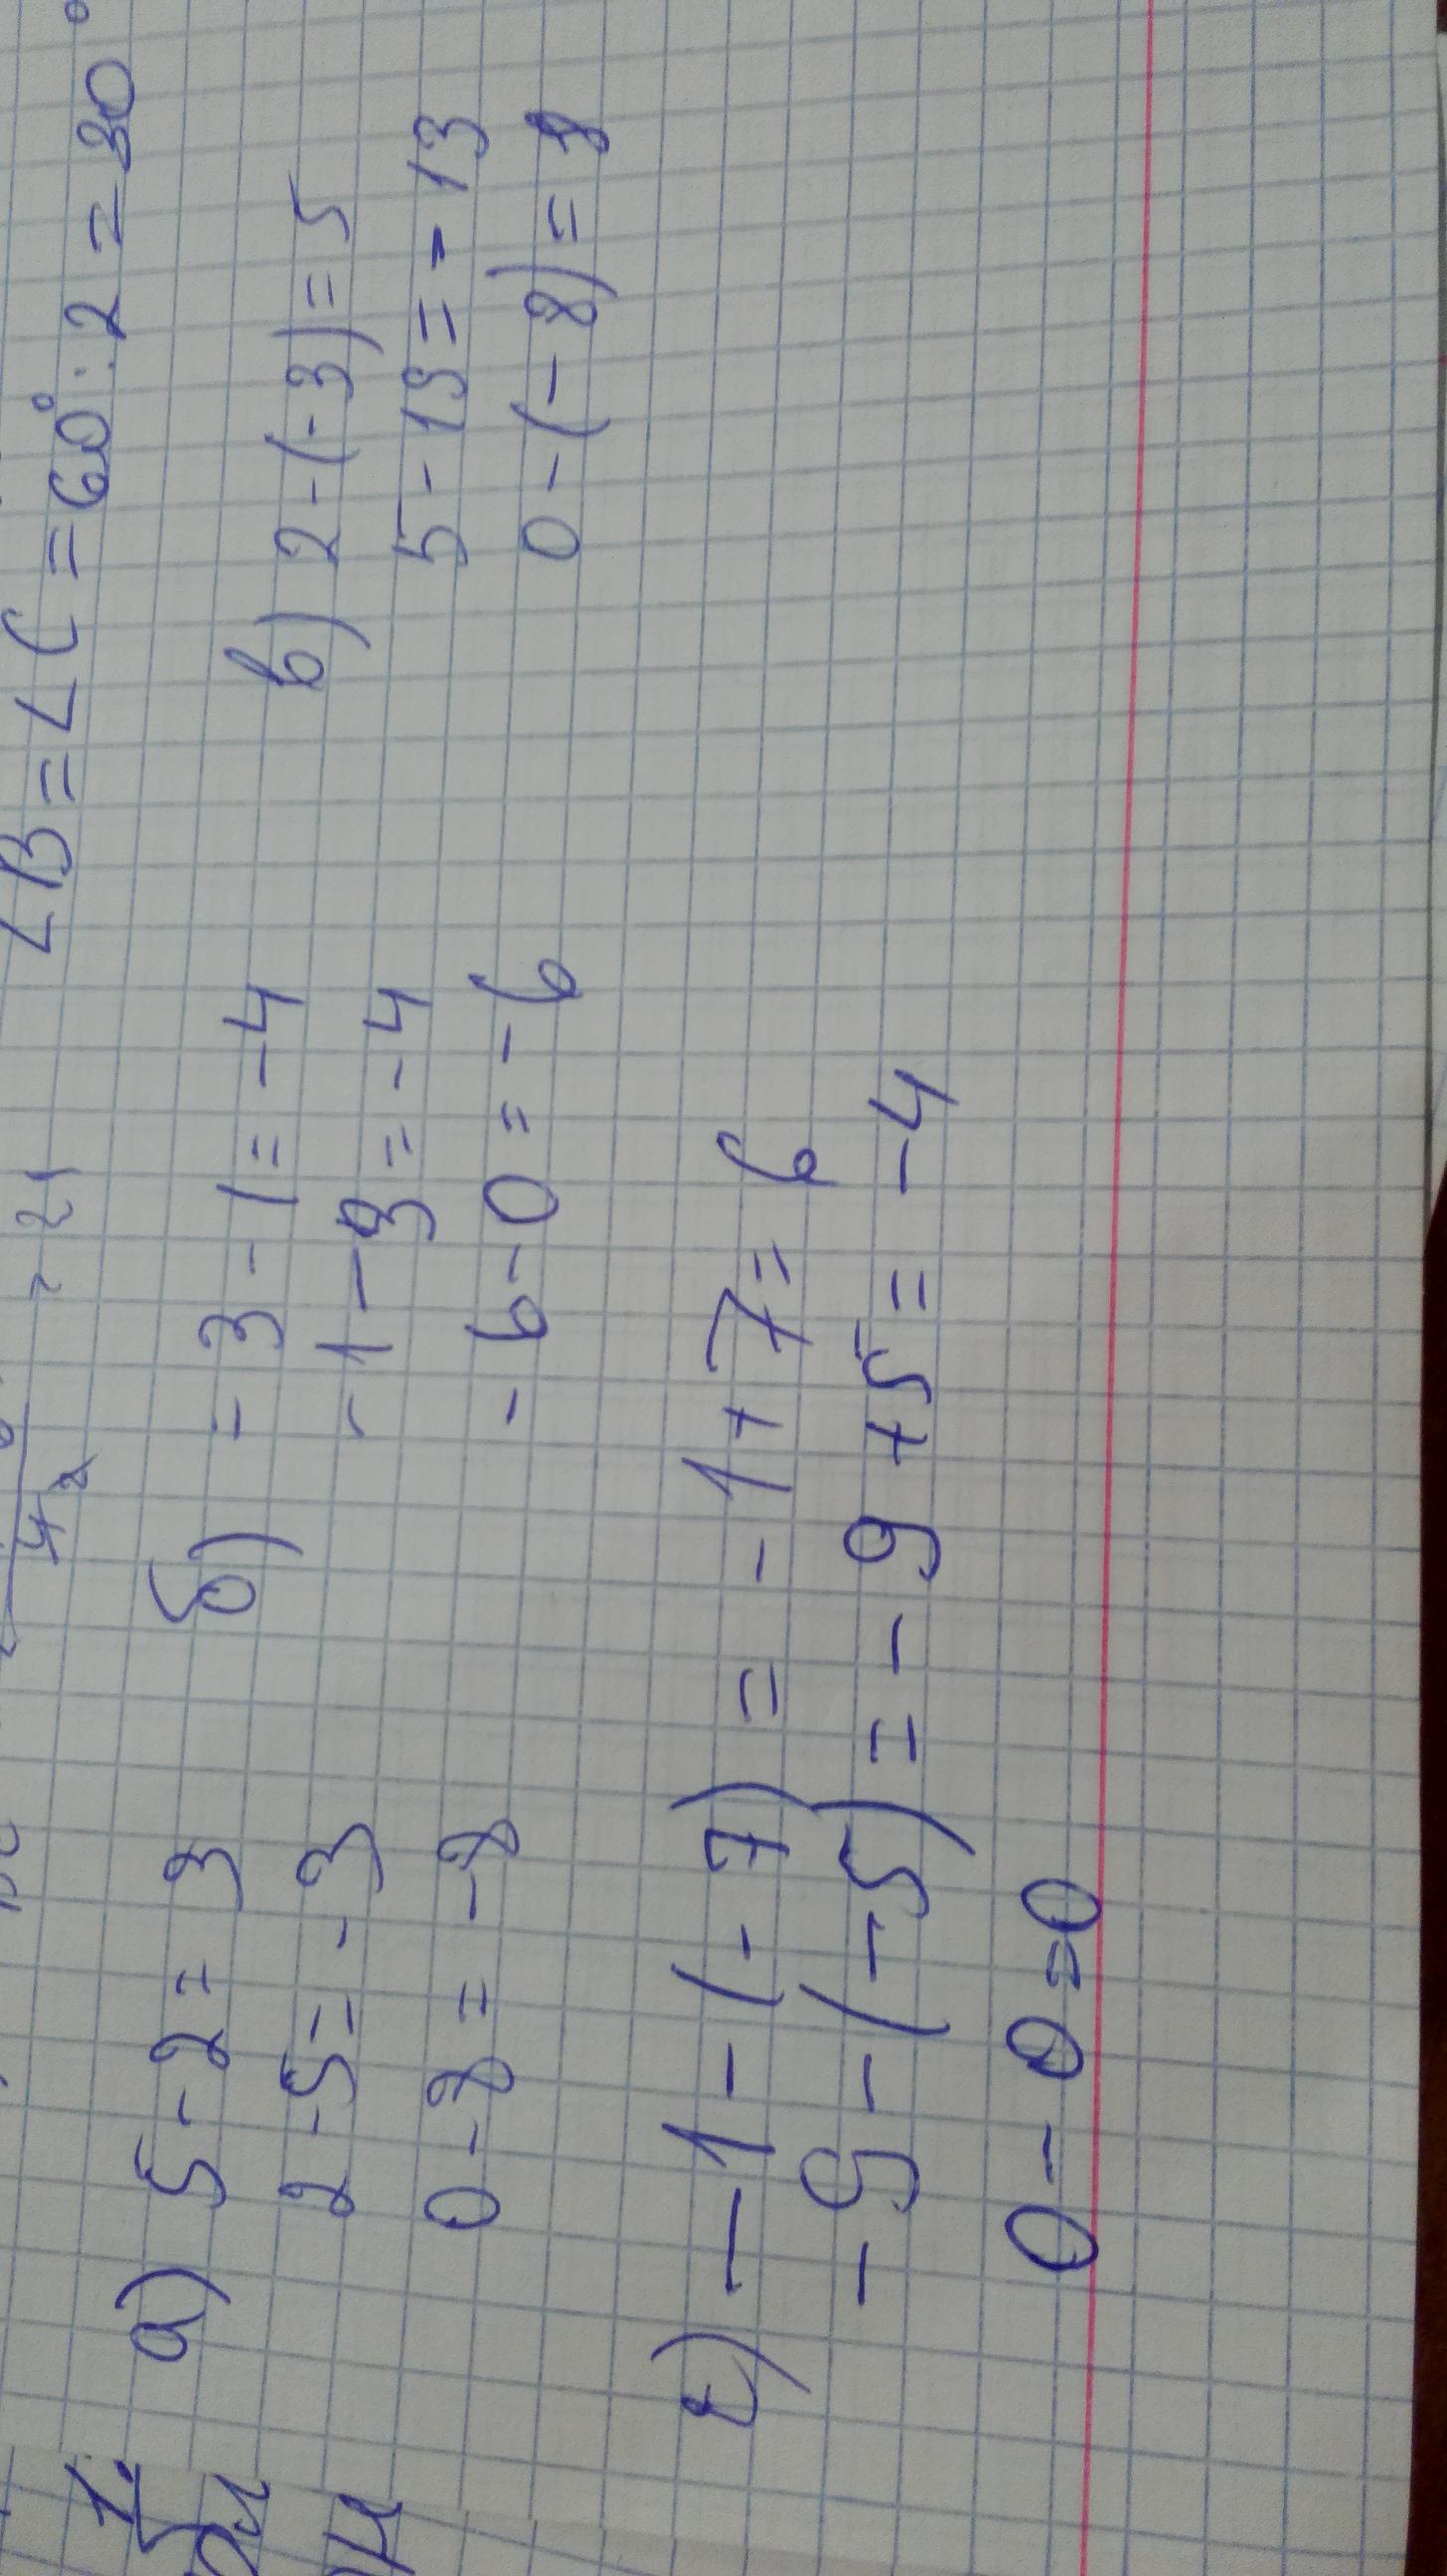 ∠B = ∠C = 60° : 2 = 30°
= 21
4 2
1.
а) 5 - 2 = 3
2 - 5 = - 3
0 - 8 = - 8
б) = 3 - 1 = - 4
- 1 - 3 = - 4
- 6 - 0 = - 6
в) 2 - (- 3) = 5
5 - 18 = - 13
0 - (- 8) = 8
г) - 1 - (- 7) = - 1 + 7 = 6
- 9 - (- 5) = - 9 + 5 = - 4
0 - 0 = 0